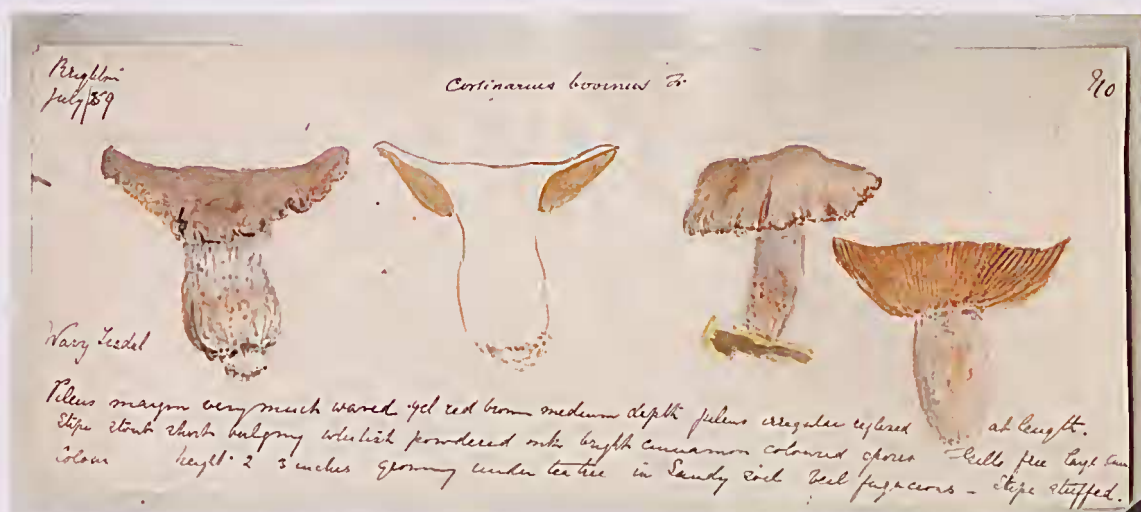 Brighton
July 89
Cortinarius bovinus Fr
9/10
Wavy
Pileus margin very much waved yel red brown medium depth pileus irregular at length.
Stipe stout short bulging whitish powdered with bright cinnamon coloured spores Gills free large
colour height 2 3 inches growing under tea tree in Sandy soil Veil fugacious - Stipe stuffed.